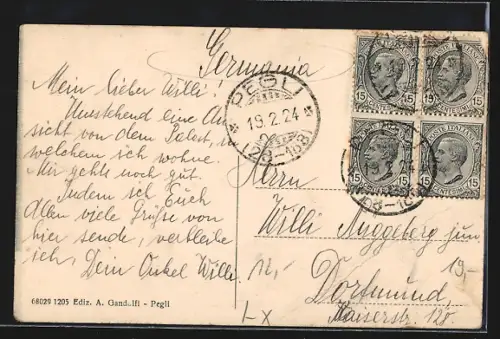 Germania
Mein lieber Willi!
Umstehend eine An-
sicht von dem Palast, in
welchem ich wohne.
Mir gehts noch gut.
Indem ich Euch
Allen viele Grüsse von
hier sende, verbleibe
ich, Dein Onkel Willi.
68029 1205 Ediz. A. Gandolfi - Pegli
PEGLI
19.2.24
15 15
POSTE ITALIANE
CENTESIMI
15 15
Herrn
Willi Muggeberg jun.
Dortmund,
Kaiserstr. 128.
12,-
19.-